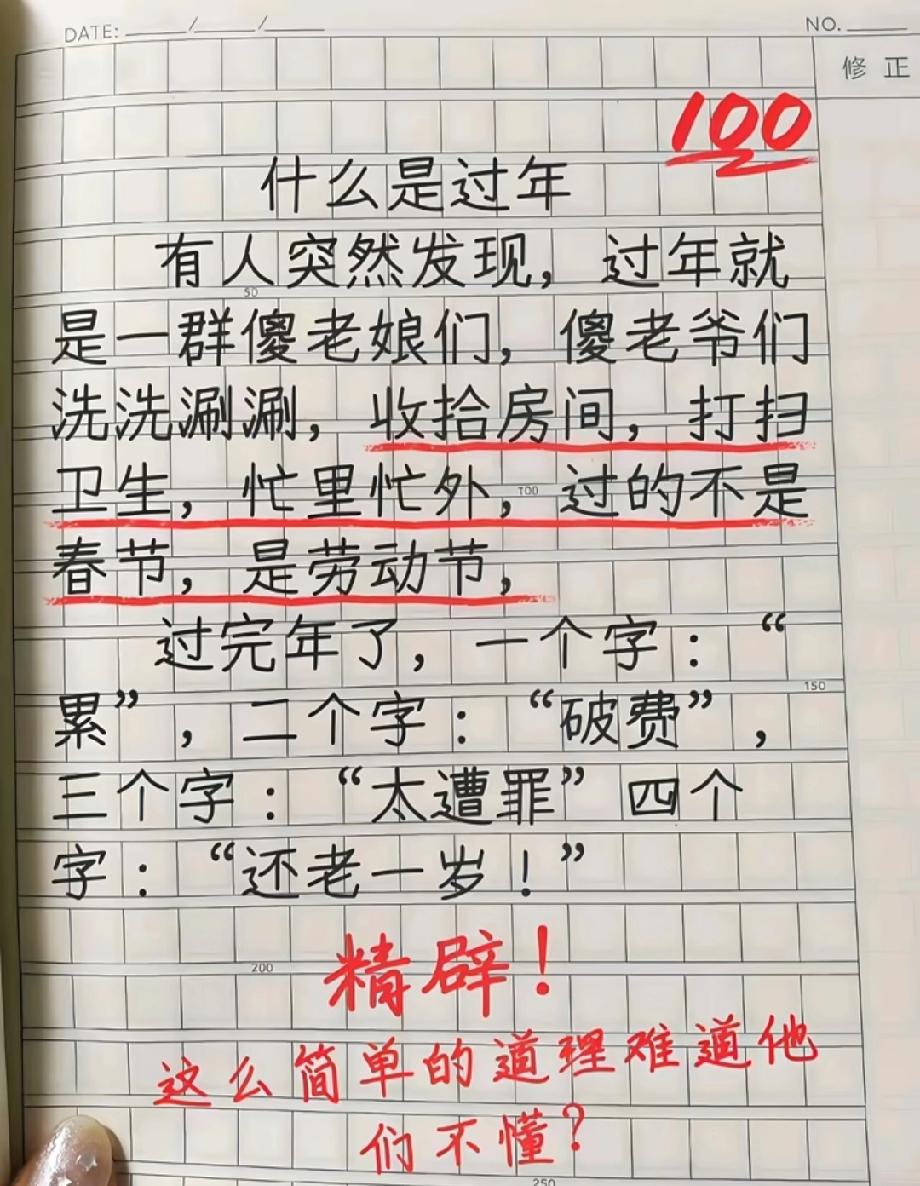 DATE: ____/____/____
NO. ____
修 正
100
什么是过年
有人突然发现，过年就
50
是一群傻老娘们，傻老爷们
洗洗涮涮，收拾房间，打扫
卫生，忙里忙外，过的不是
100
春节，是劳动节，
过完年了，一个字：“
150
累”，二个字：“破费”，
三个字：“太遭罪”四个
字：“还老一岁！”
精辟！
200
这么简单的道理难道他
们不懂？
250